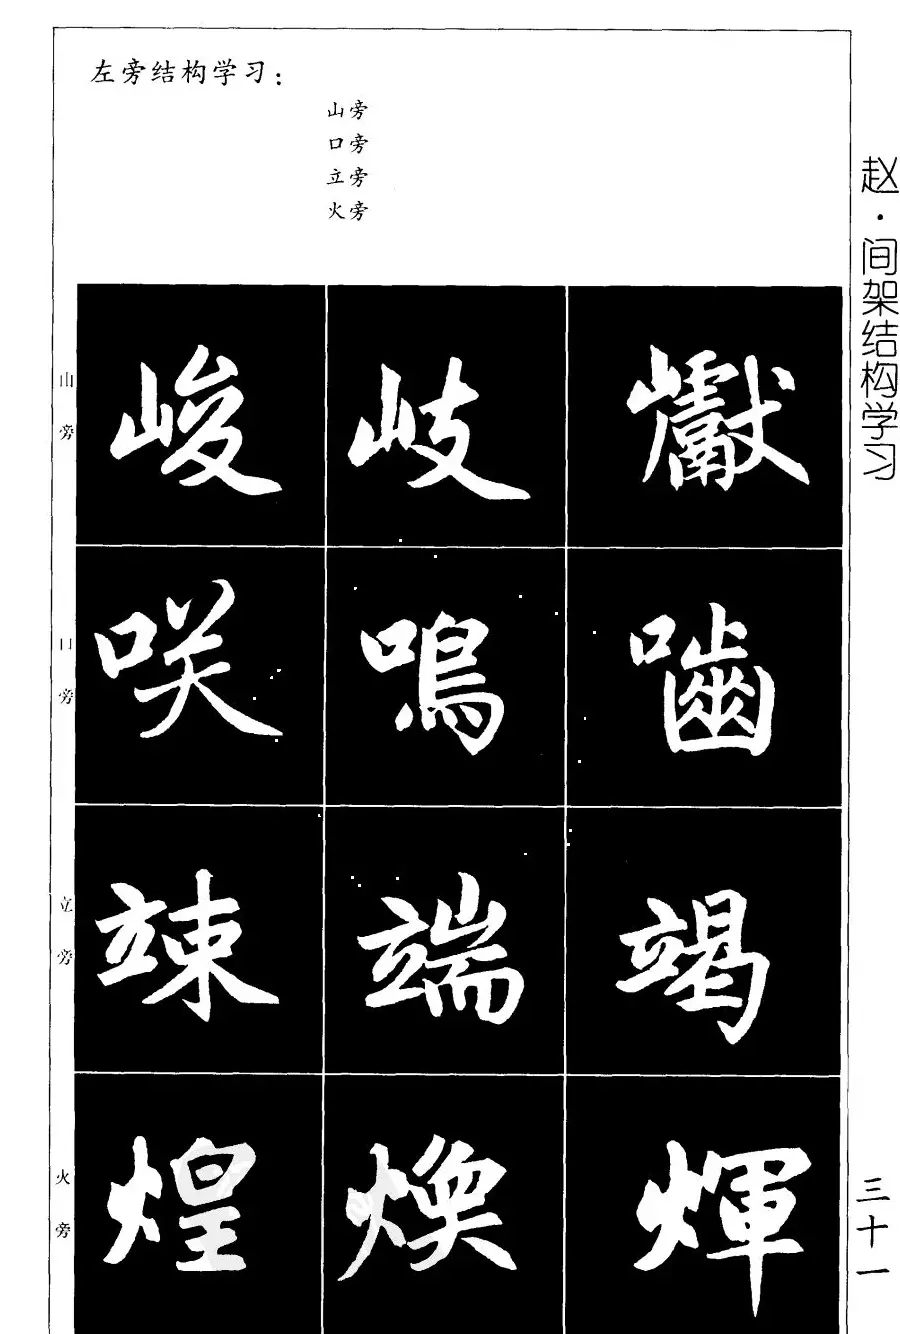 左旁结构学习：
山旁
口旁
立旁
火旁
赵·间架结构学习
山旁
峻 岐 巘
口旁
咲 鳴 嚙
立旁
竦 端 竭
火旁
煌 煥 煇
三十一